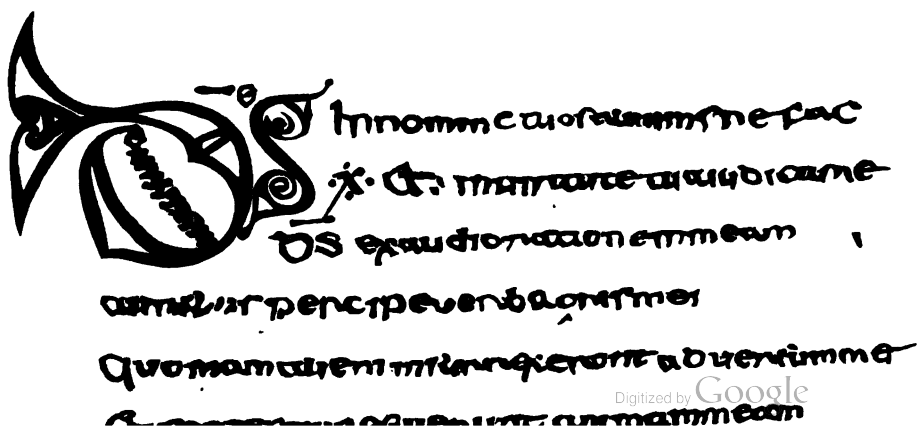 DS In nomine tuo saluum me fac
& in uirtute tua iudica me
ds exaudi orationem meam
auribus percipe uerba oris mei
Quoniam alieni insurrexerunt aduersum me
animam meam
Digitized by Google